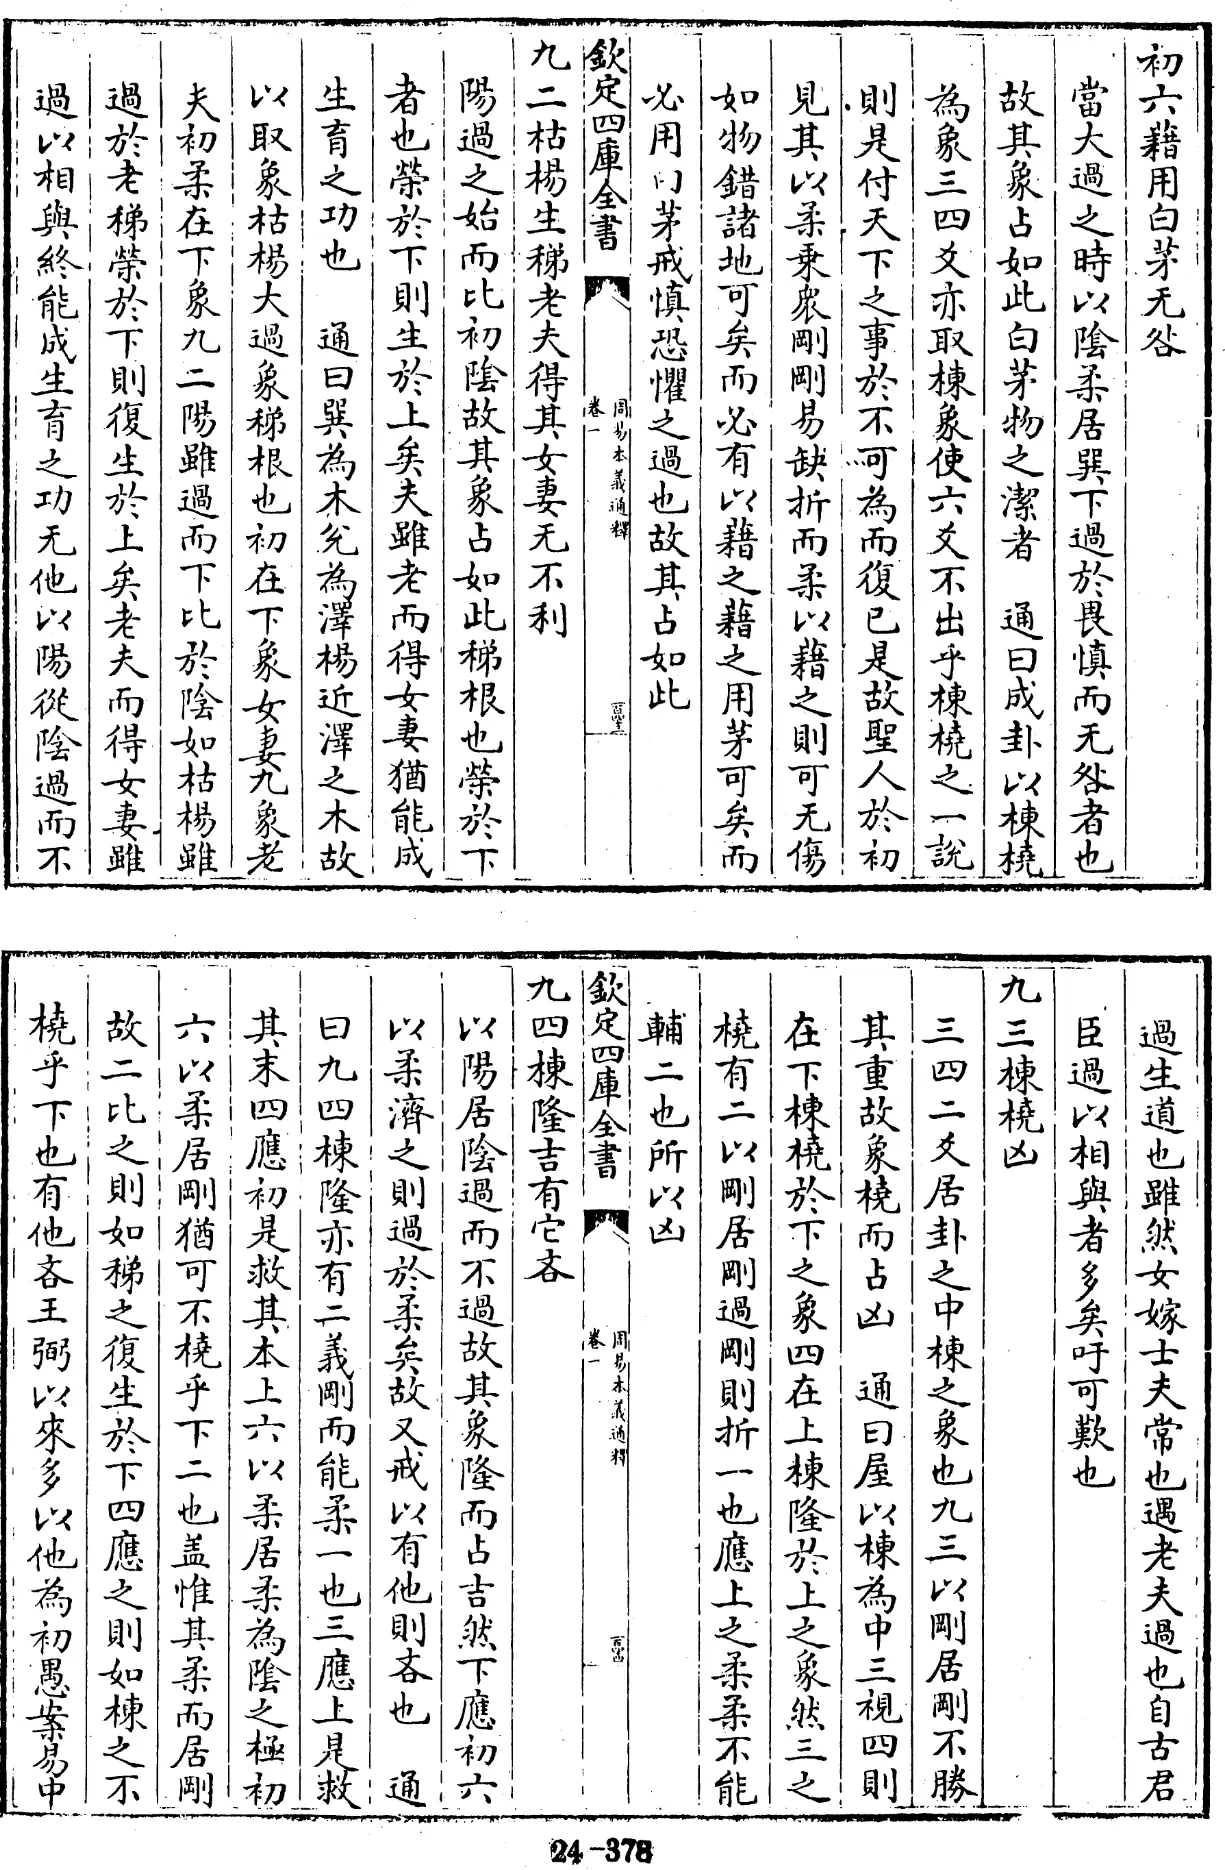 初六藉用白茅无咎
當大過之時以陰柔居巽下過於畏慎而无咎者也
故其象占如此白茅物之潔者　通曰成卦以棟橈
為象三四爻亦取棟象使六爻不出乎棟橈之一說
則是付天下之事於不可為而復已是故聖人於初
見其以柔乗衆剛剛易缺折而柔以藉之則可无傷
如物錯諸地可矣而必有以藉之藉之用茅可矣而
必用白茅戒慎恐懼之過也故其占如此
欽定四庫全書
周易本義通釋
卷一
九二枯楊生稊老夫得其女妻无不利
陽過之始而比初陰故其象占如此稊根也榮於下
者也榮於下則生於上矣夫雖老而得女妻猶能成
生育之功也　通曰巽為木兊為澤楊近澤之木故
以取象枯楊大過象稊根也初在下象女妻九象老
夫初柔在下象九二陽雖過而下比於陰如枯楊雖
過於老稊榮於下則復生於上矣老夫而得女妻雖
過以相與終能成生育之功无他以陽從陰過而不
過生道也雖然女嫁士夫常也遇老夫過也自古君
臣過以相與者多矣吁可歎也
九三棟橈凶
三四二爻居卦之中棟之象也九三以剛居剛不勝
其重故象橈而占凶　通曰屋以棟為中三視四則
在下棟橈於下之象四在上棟隆於上之象然三之
橈有二以剛居剛過剛則折一也應上之柔柔不能
輔二也所以凶
欽定四庫全書
周易本義通釋
卷一
九四棟隆吉有它吝
以陽居陰過而不過故其象隆而占吉然下應初六
以柔濟之則過於柔矣故又戒以有他則吝也　通
曰九四棟隆亦有二義剛而能柔一也三應上是救
其末四應初是救其本上六以柔居柔為陰之極初
六以柔居剛猶可不橈乎下二也盖惟其柔而居剛
故二比之則如稊之復生於下四應之則如棟之不
橈乎下也有他吝王弼以來多以他為初愚案易中
24-378